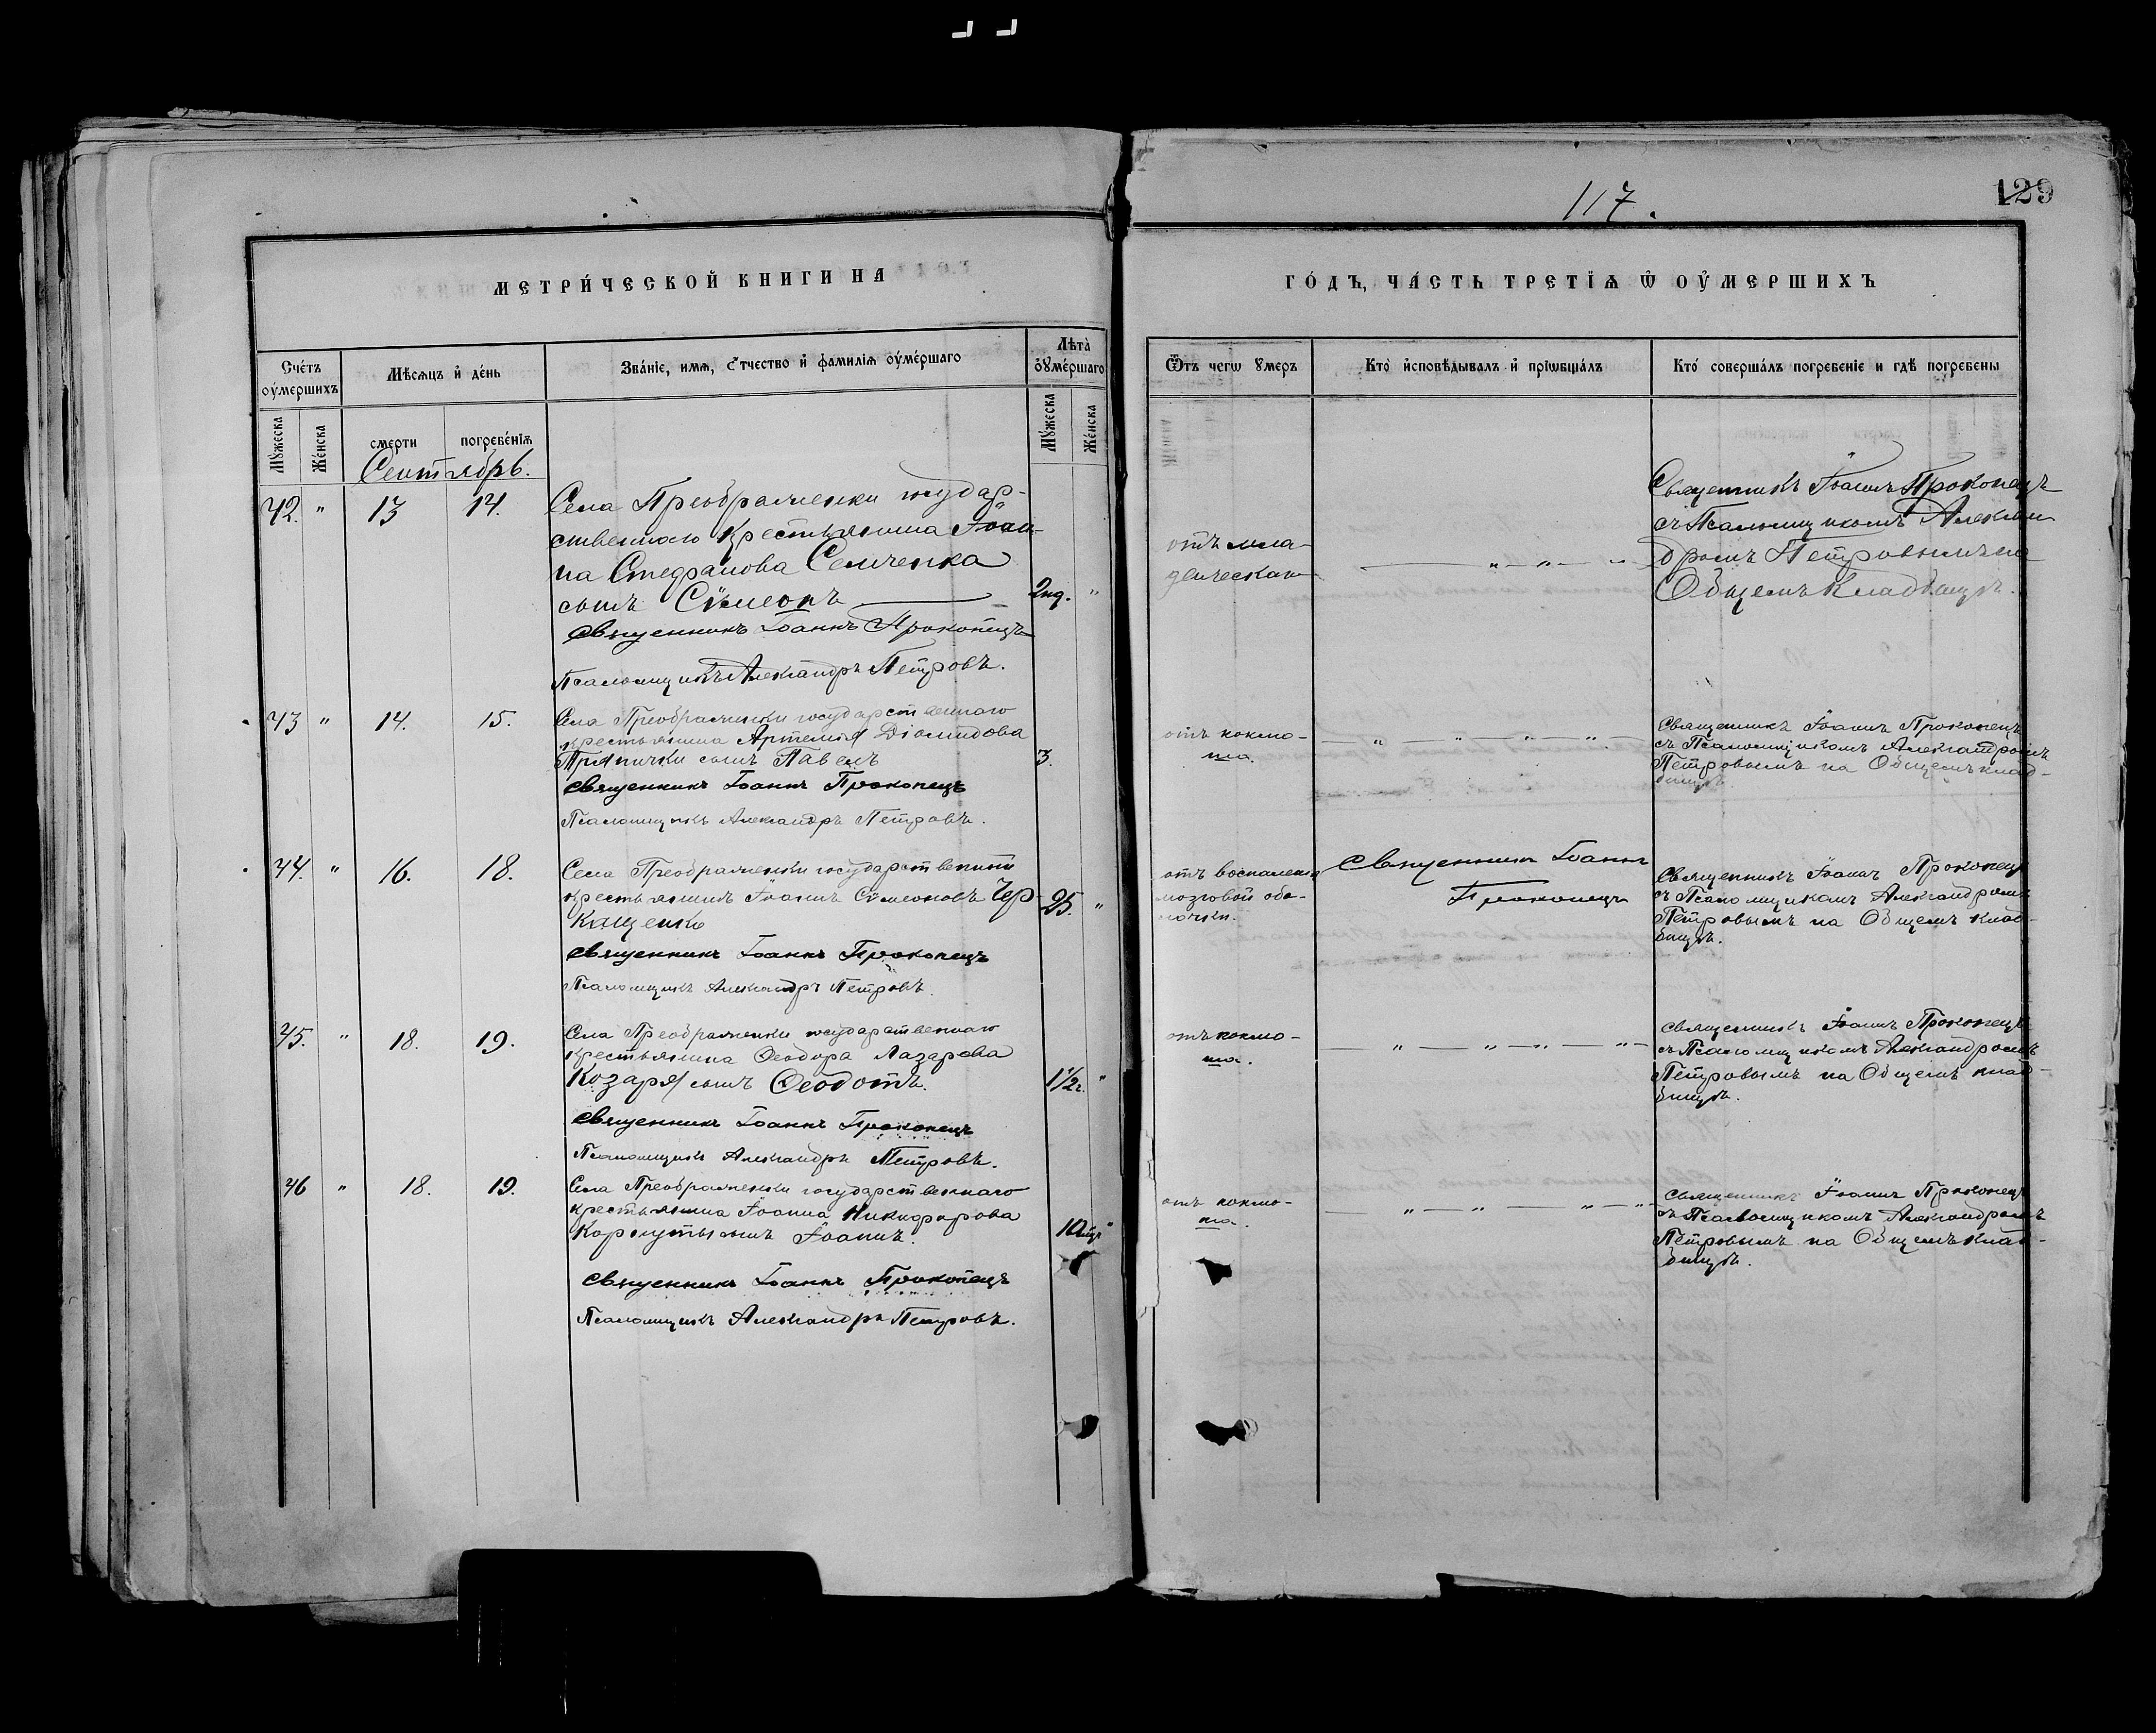 117.
129
МЕТРИ́ЧЕСКОЙ КНИГИ НА
ГО́ДЪ, ЧА́СТЬ ТРЕТІѦ Ѡ ОУ҆МЕРШИХЪ
Сче́тъ оу҆ме́ршихъ
Мѣсяцъ и҆ де́нь
Зва́ніе, имя, о́тчество и҆ фамилія оу҆ме́ршаго
Лѣта̀ оу҆ме́ршаго
Ѿтъ чегѡ ᲂумеръ
Кто̀ и҆сповѣ́дывалъ и҆ пріѡбща́лъ
Кто́ соверша́лъ погребе́ніе и гдѣ̀ погребены
Мꙋжеска
Же́нска
смерти
погребе́нія
Мꙋ́жеска
Же́нска
Сентябрь.
42. " 13 14.
Села Преображенки государ-
ственнаго крестьянина Іоан-
на Стефанова Семченка
сынъ Сѵмеонъ
2нд. "
Священникъ Іоаннъ Прокопецъ
Псаломщикъ Александръ Петровъ.
отъ мла-
денческаго
— " — " — " —
Священникъ Іоаннъ Прокопецъ
съ Псаломщикомъ Алексан
дромъ Петровымъ на
Общемъ Кладбищѣ.
43 " 14. 15.
Села Преображенки государственнаго
крестьянина Артемія Діомидова
Прянички сынъ Павелъ
3.
Священникъ Іоаннъ Прокопецъ
Псаломщикъ Александръ Петровъ.
отъ коклю-
ша.
— " — " — " — " —
Священникъ Іоаннъ Прокопецъ
съ Псаломщикомъ Александромъ
Петровымъ на Общемъ клад-
бищѣ
44. " 16. 18.
Села Преображенки государственный
крестьянинъ Іоаннъ Сѵмеоновъ Чер-
кащенко
25. "
Священникъ Іоаннъ Прокопецъ
Псаломщикъ Александръ Петровъ.
отъ воспаленія
мозговой обо-
лочки.
Священникъ Іоаннъ
Прокопецъ
Священникъ Іоаннъ Прокопецъ
съ Псаломщикомъ Александромъ
Петровымъ на Общемъ клад-
бищѣ.
45. " 18. 19.
Села Преображенки государственнаго
крестьянина Ѳеодора Лазарева
Козаря сынъ Ѳеодотъ.
1½г. "
Священникъ Іоаннъ Прокопецъ
Псаломщикъ Александръ Петровъ.
отъ коклю-
ша.
" — " — " — " —
Священникъ Іоаннъ Прокопецъ
съ Псаломщикомъ Александромъ
Петровымъ на Общемъ клад-
бищѣ.
46 " 18. 19.
Села Преображенки государственнаго
крестьянина Іоанна Никифорова
сынъ Іоаннъ.
10мцъ "
Священникъ Іоаннъ Прокопецъ
Псаломщикъ Александръ Петровъ.
отъ коклю-
ша.
— " — " — " — " —
Священникъ Іоаннъ Прокопецъ
съ Псаломщикомъ Александромъ
Петровымъ на Общемъ клад-
бищѣ.